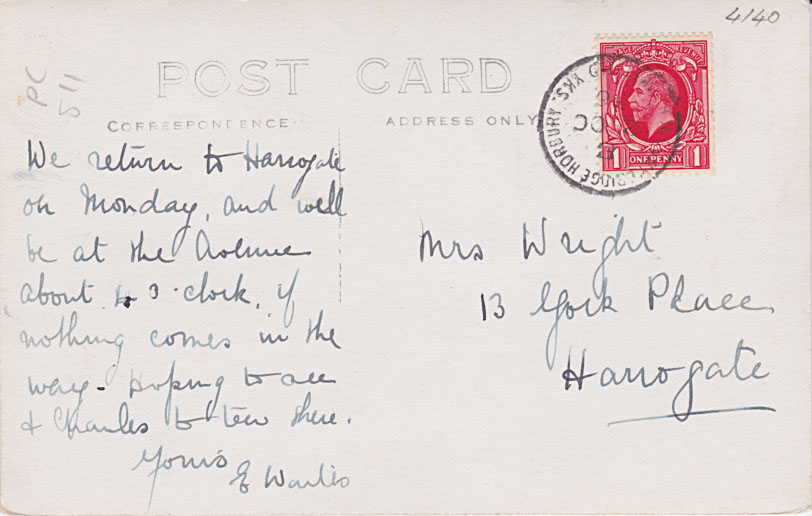 4/40
POST CARD
PC
511
CORRESPONDENCE
ADDRESS ONLY
POSTAGE REVENUE
1 ONE PENNY 1
BRIDGE HORBURY YKS.
We return to Harrogate
on Monday, and will
be at the Avenue
about 4 o'clock, if
nothing comes in the
way - Hoping to see
& Charles to tea there.
Yours
E
Mrs Wright
13 York Place
Harrogate